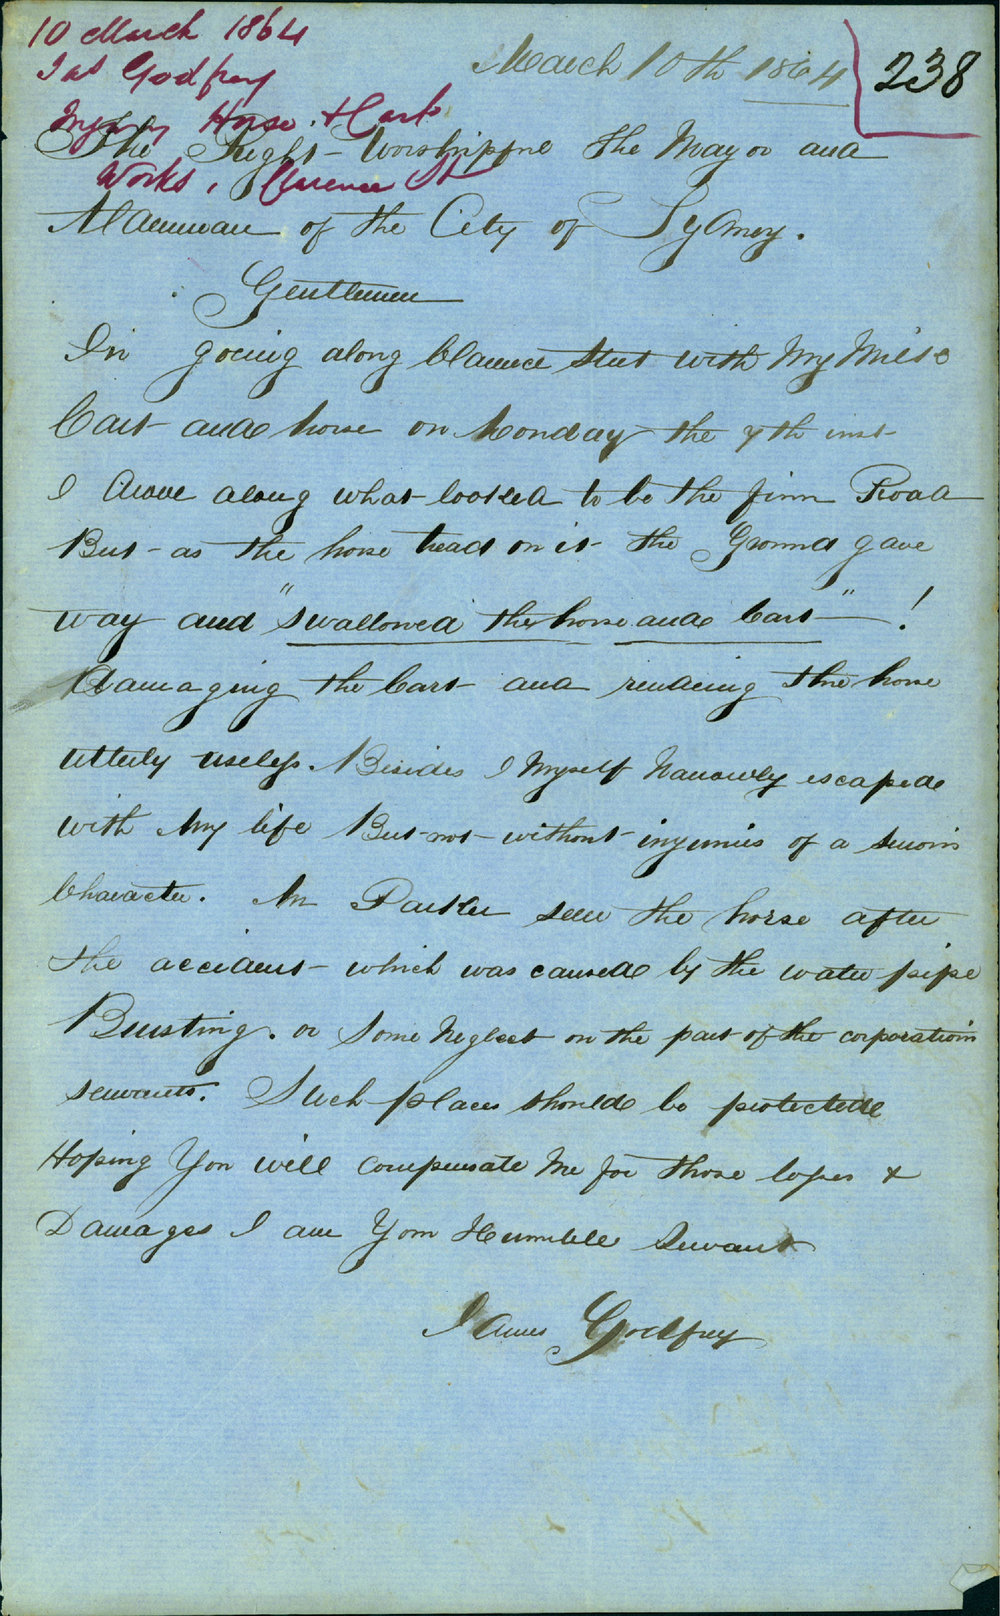 10 March 1864
Jas Godfrey
Injury Horse & Cart
Works, Clarence St
238
March 10th 1864
The Right Worshipful The Mayor and
Aldermen of the City of Sydney.
Gentlemen
In going along Clarence Street with My Milk
Cart and horse on Monday the 7th inst
I drove along what looked to be the firm Road
But as the horse tread on it the Ground gave
way and "swallowed the horse and Cart" !
Damaging the Cart and rendering the horse
utterly useless. Besides I Myself Narrowly escaped
with My life But not without injuries of a serious
Character. Mr Parker seen the horse after
the accident which was caused by the water pipe
Bursting. or Some Neglect on the part of the corporation
servants. Such places should be protected
Hoping You will compensate Me for those losses &
Damages I am Your Humble Servant
James Godfrey